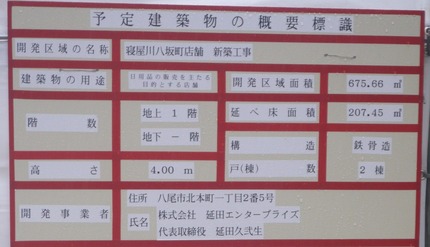 予定建築物の概要標識
開発区域の名称 寝屋川八坂町店舗 新築工事
建築物の用途 日用品の販売を主たる目的とする店舗 開発区域面積 675.66 ㎡
階数 地上 1 階 地下 − 階 延べ床面積 207.45 ㎡
構造 鉄骨造
高さ 4.00 m 戸(棟)数 2 棟
開発事業者 住所 八尾市北本町一丁目2番5号
氏名 株式会社 延田エンタープライズ
代表取締役 延田久弐生